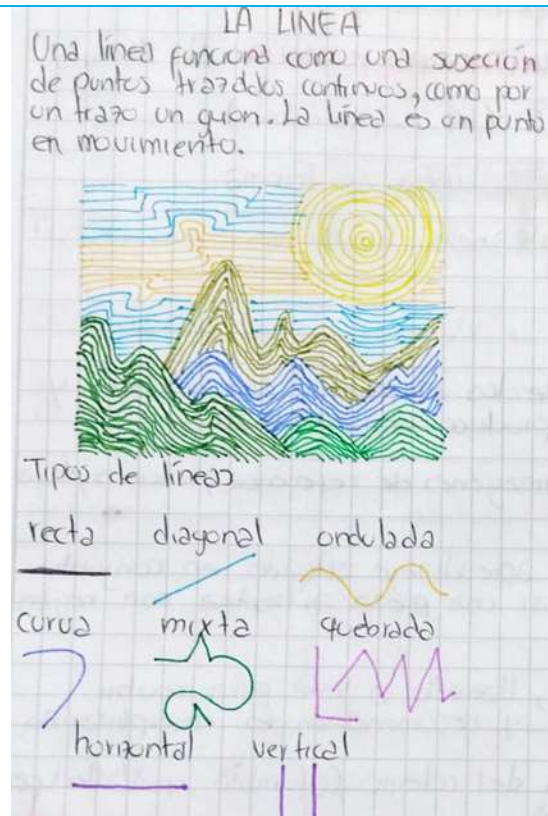 LA LINEA
Una línea funciona como una suseción
de puntos trazados continuos, como por
un trazo un guon. La línea es un punto
en movimiento.
Tipos de líneas
recta diagonal ondulada
curva mixta quebrada
horizontal vertical